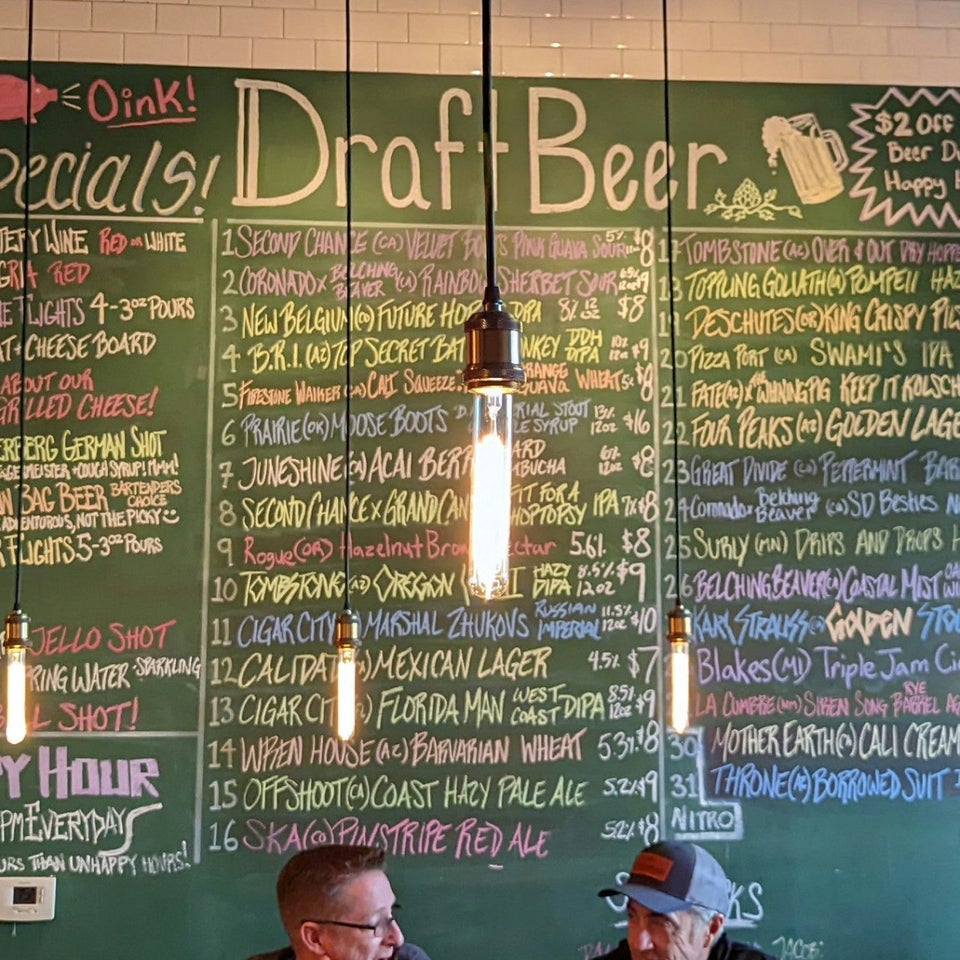 Oink!
pecials!
Draft Beer
$2 Off
Beer D
Happy H
WINE RED OR WHITE
GRIA RED
FLIGHTS 4-3oz POURS
AT + CHEESE BOARD
ABOUT OUR
GRILLED CHEESE!
ERBERG GERMAN SHOT
COUGH SYRUP! MMM!
BAG BEER BARTENDERS CHOICE
ADVENTUROUS, NOT THE PICKY
FLIGHTS 5-3oz POURS
JELLO SHOT
RING WATER SPARKLING
SHOT!
Y HOUR
PM EVERYDAY
URS THAN UNHAPPY HOURS!
1 SECOND CHANCE (CA) VELVET PINK GUAVA SOUR 5% 12oz $8
2 CORONADO x BELCHING BEAVER (CA) RAINBO SHERBET SOUR 12oz $9
3 NEW BELGIUM (CO) FUTURE HO DIPA 8% 12 oz $8
4 B.R.I. (AZ) TOP SECRET BAT NKEY DDH DIPA 10% 12oz $9
5 FIRESTONE WALKER (CA) CALI SQUEEZE RANGE GUAVA WHEAT 5% $8
6 PRAIRIE (OK) MOOSE BOOTS IAL STOUT LE SYRUP 13% 12oz $16
7 JUNESHINE (CA) ACAI BERR ARD BUCHA 6% 12oz $8
8 SECOND CHANCE x GRAND CAN IT FOR A HOPTOPSY IPA 7% $8
9 Rogue (OR) Hazelnut Brow ectar 5.6% $8
10 TOMBSTONE (AZ) OREGON HAZY DIPA 8.5% 12oz $9
11 CIGAR CITY MARSHAL ZHUKOVS RUSSIAN IMPERIAL 11.5% 12oz $10
12 CALIDA MEXICAN LAGER 4.5% $7
13 CIGAR CIT FLORIDA MAN WEST COAST DIPA 8.5% 12oz $9
14 WREN HOUSE (AZ) BARVARIAN WHEAT 5.3% $8
15 OFFSHOOT (CA) COAST HAZY PALE ALE 5.2% $9
16 SKA (CO) PINSTRIPE RED ALE 5.2% $8
17 TOMBSTONE (AZ) OVER & OUT DRY HOPPE
TOPPLING GOLIATH (IA) POMPEII HAZ
DESCHUTES (OR) KING CRISPY PILS
20 PIZZA PORT (CA) SWAMI'S IPA
21 FATE (AZ) x PIG KEEP IT KOLSCH
22 FOUR PEAKS (AZ) GOLDEN LAGE
23 GREAT DIVIDE (CO) PEPPERMINT BAR
24 Coronado x Belching Beaver (CA) SD Besties
25 SURLY (MN) DRIPS AND DROPS H
26 BELCHING BEAVER (CA) COASTAL MIST
KARL STRAUSS GOLDEN STOU
Blakes (MI) Triple Jam Ci
LA CUMBRE (NM) SIREN SONG RYE BARREL AG
30 MOTHER EARTH (CA) CALI CREAM
31 THRONE (AZ) BORROWED SUIT
NITRO